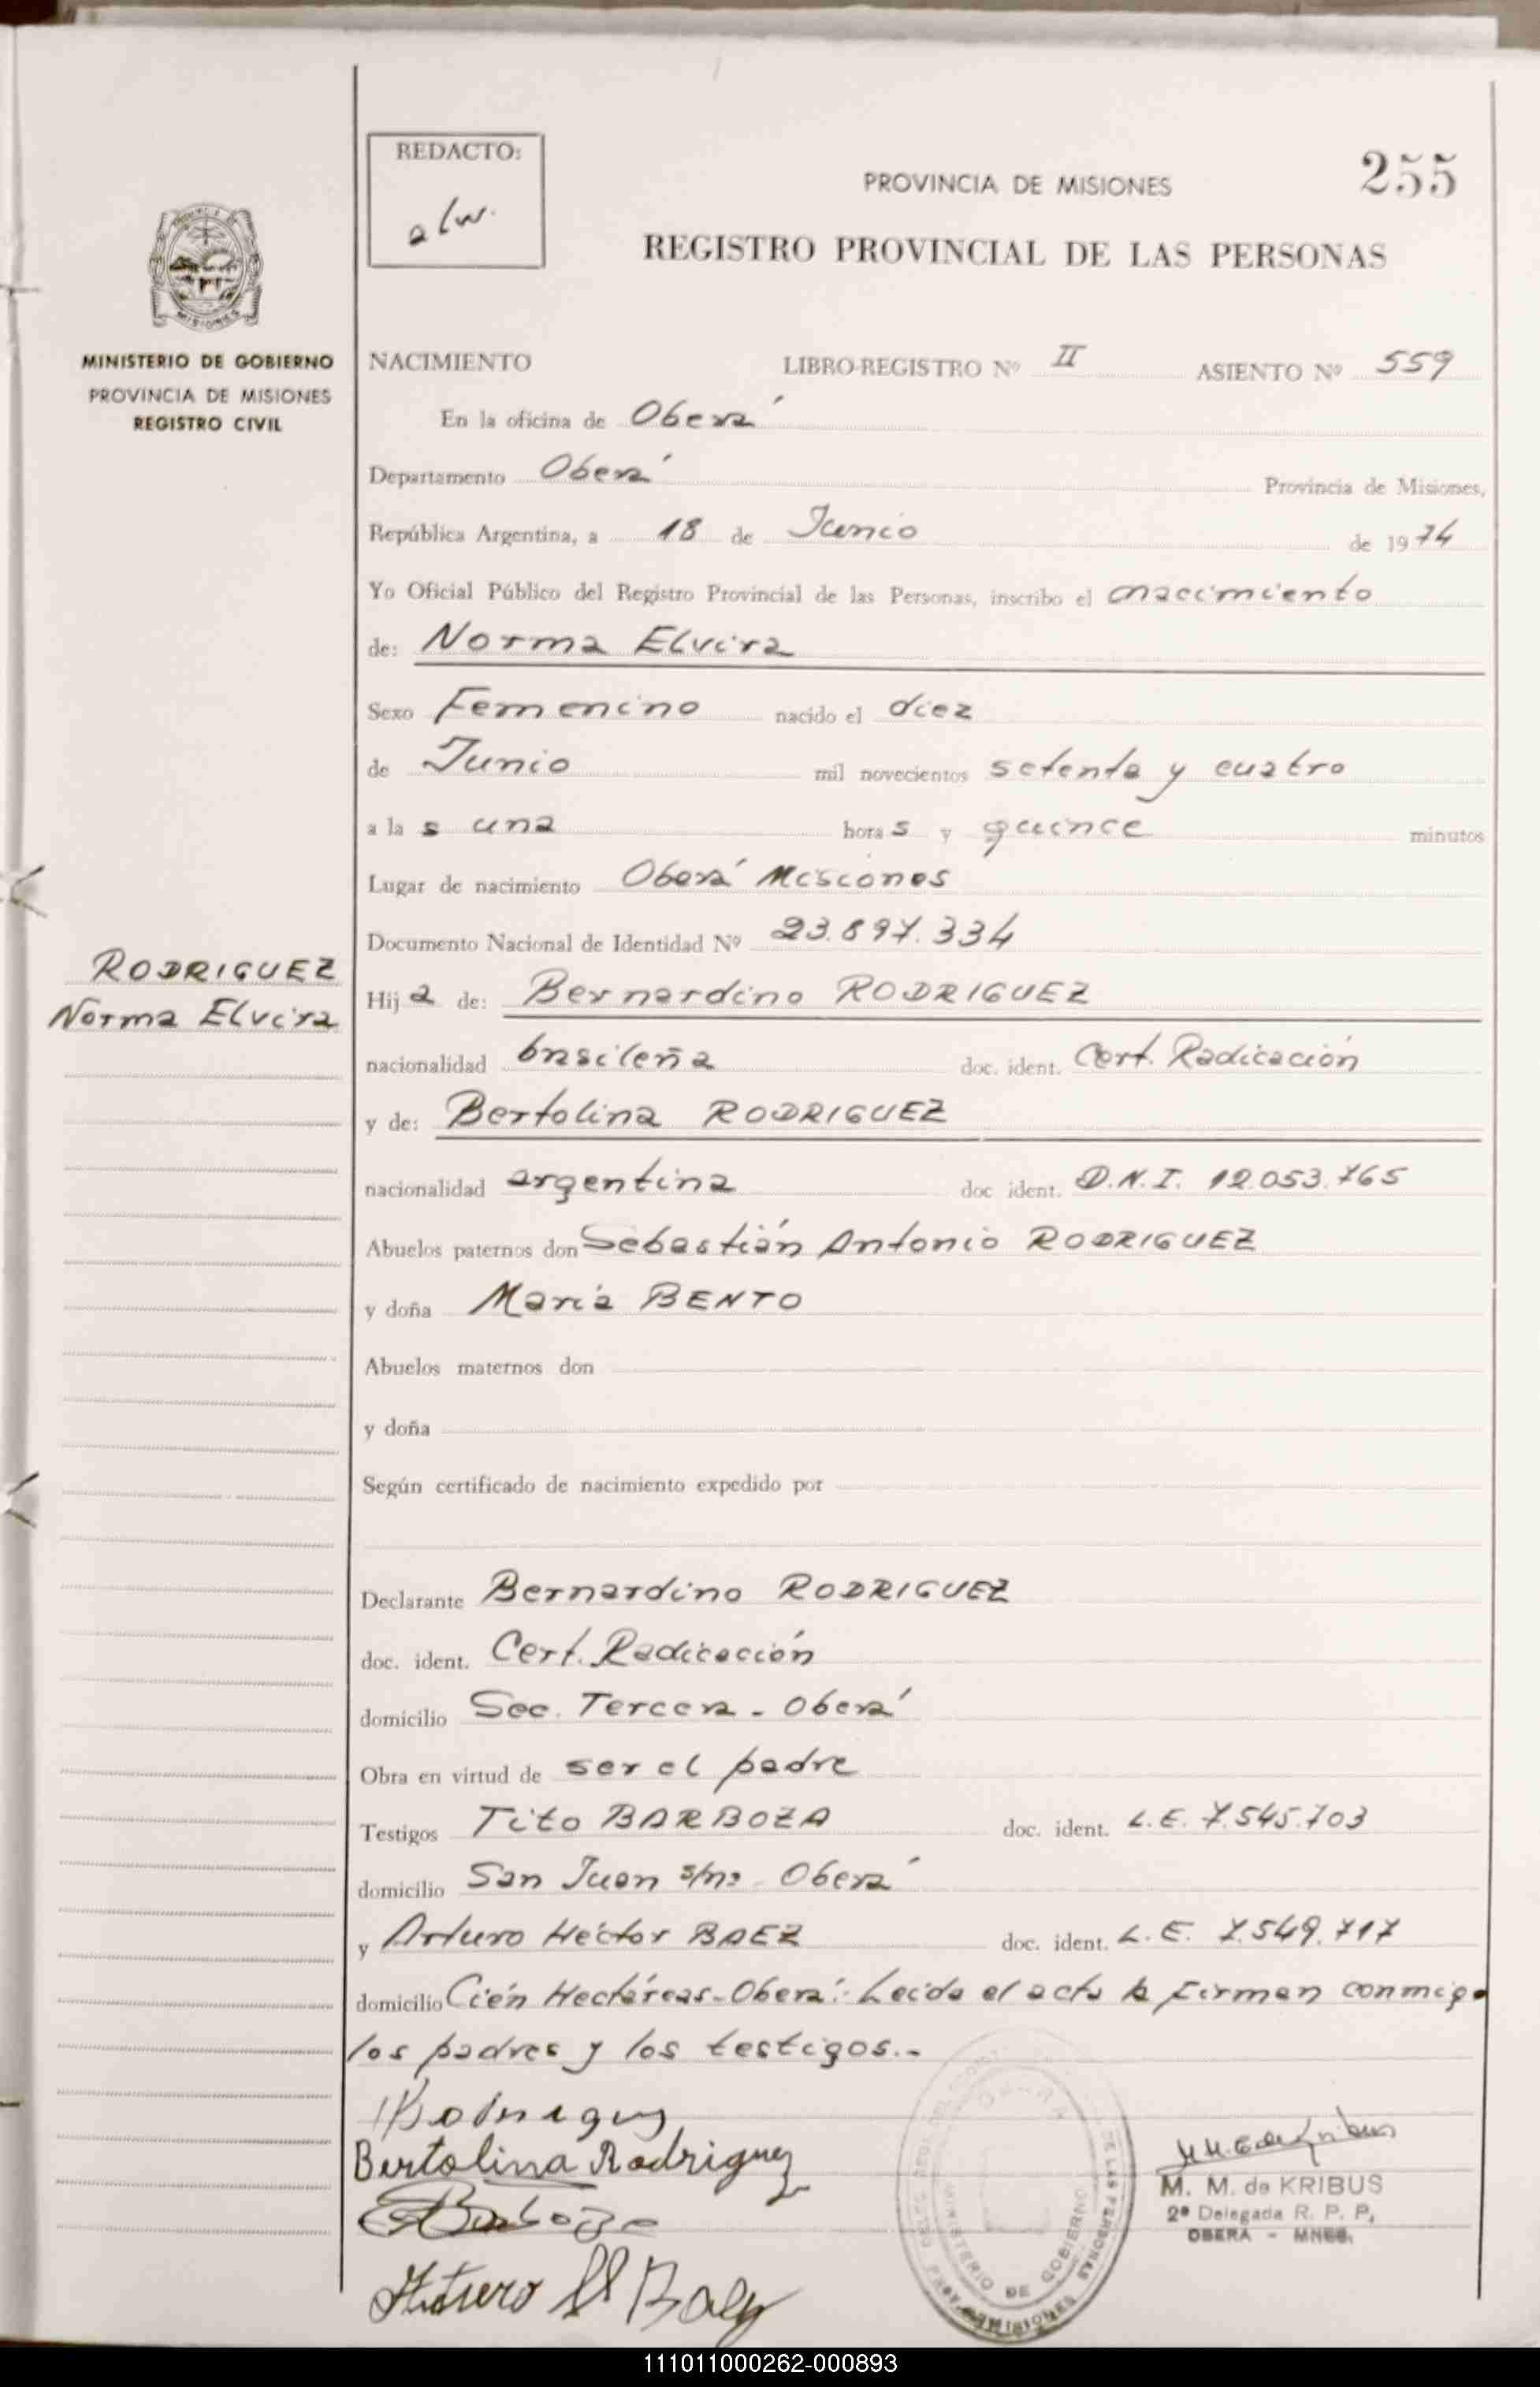 REDACTO:
alw.
PROVINCIA DE MISIONES
255
REGISTRO PROVINCIAL DE LAS PERSONAS
MISIONES
MINISTERIO DE GOBIERNO
PROVINCIA DE MISIONES
REGISTRO CIVIL
NACIMIENTO LIBRO-REGISTRO Nº II ASIENTO Nº 559
En la oficina de Oberá
Departamento Oberá Provincia de Misiones,
República Argentina, a 18 de Junio de 1974
Yo Oficial Público del Registro Provincial de las Personas, inscribo el nacimiento
de: Norma Elvira
Sexo Femenino nacido el diez
de Junio mil novecientos setenta y cuatro
a las una horas y quince minutos
Lugar de nacimiento Oberá Misiones
Documento Nacional de Identidad Nº 23.897.334
RODRIGUEZ
Norma Elvira
Hija de: Bernardino RODRIGUEZ
nacionalidad brasileña doc. ident. Cert. Radicación
y de: Bertolina RODRIGUEZ
nacionalidad argentina doc ident. D.N.I. 12.053.765
Abuelos paternos don Sebastián Antonio RODRIGUEZ
y doña María BENTO
Abuelos maternos don
y doña
Según certificado de nacimiento expedido por
Declarante Bernardino RODRIGUEZ
doc. ident. Cert. Radicación
domicilio Sec. Tercera - Oberá
Obra en virtud de ser el padre
Testigos Tito BARBOZA doc. ident. L.E. 7.545.703
domicilio San Juan s/nº - Oberá
y Arturo Héctor BAEZ doc. ident. L.E. 7.549.717
domicilio Cién Hectáreas - Oberá.- Leida el acta la firman conmigo
los padres y los testigos.-
Bertolina Rodriguez
Barboza
Arturo H Baez
OBERA
MINISTERIO DE GOBIERNO
DE LAS PERSONAS
PROV. MISIONES
M. M. de KRIBUS
2ª Delegada R. P. P.
OBERA - MNES.
111011000262-000893